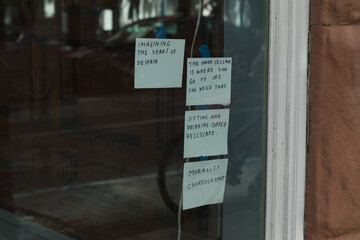 IMAGINING
THE YEARS OF
DESPAIR
THE ONION CELLAR
IS WHERE YOU
GO TO CRY.
YOU NEED THAT.
SITTING AND
DRINKING COFFEE
HELLSCAPE.
MORALITY
CHOREOGRAPHY